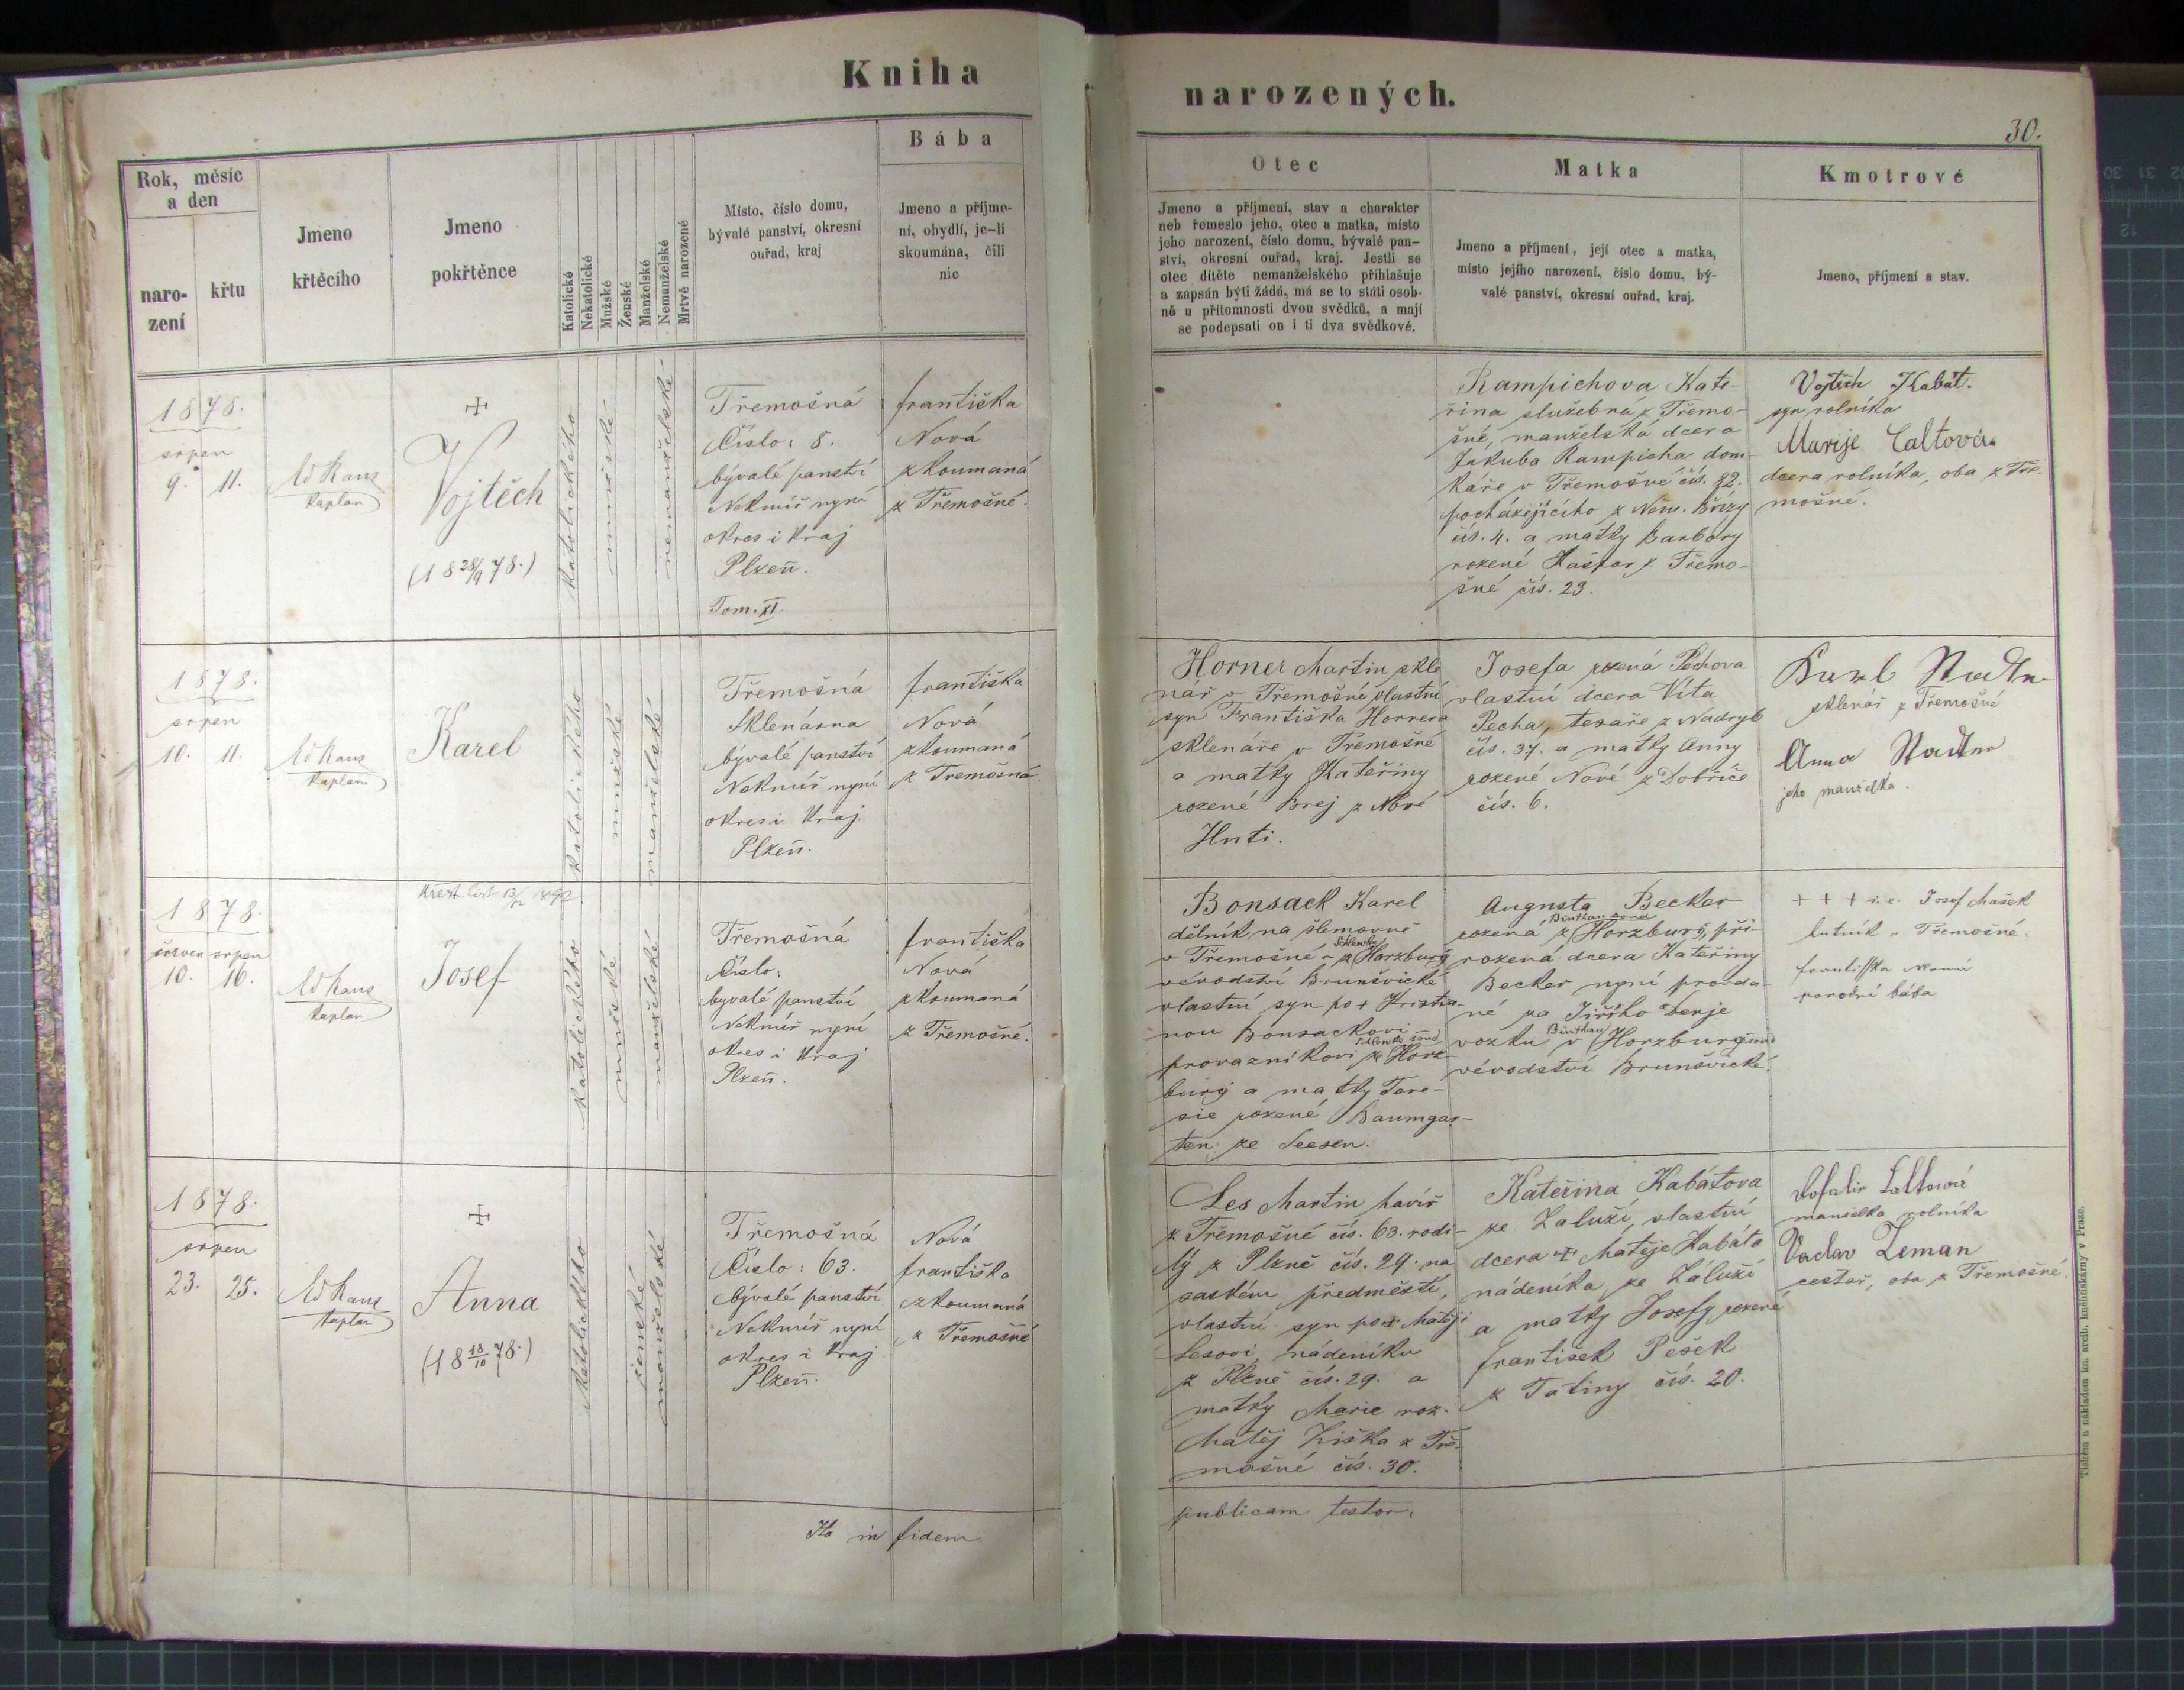 Kniha
narozených.
30.
Rok, měsíc
a den
naro-
zení
křtu
Jmeno
křtěcího
Jmeno
pokřtěnce
Katolické
Nekatolické
Mužské
Ženské
Manželské
Nemanželské
Mrtvě narozené
Místo, číslo domu,
bývalé panství, okresní
ouřad, kraj
Bába
Jmeno a příjme-
ní, obydlí, je-li
skoumána, čili
nic
Otec
Jmeno a příjmení, stav a charakter
neb řemeslo jeho, otec a matka, místo
jeho narození, číslo domu, bývalé pan-
ství, okresní ouřad, kraj. Jestli se
otec dítěte nemanželského přihlašuje
a zapsán býti žádá, má se to státi osob-
ně u přítomnosti dvou svědků, a mají
se podepsati on i ti dva svědkové.
Matka
Jmeno a příjmení, její otec a matka,
místo jejího narození, číslo domu, bý-
valé panství, okresní ouřad, kraj.
Kmotrové
Jmeno, příjmení a stav.
1878.
srpen
9. 11.
Kaplan
+
Vojtěch
(18 28/9 78.)
katolického
mužské
nemanželské
Třemošná
Číslo: 8.
bývalé panství
Nekmíř nyní
okres i kraj
Plzeň.
Tom. XI.
Františka
Nová
zkoumaná
z Třemošné.
Rampichova Kate-
řina služebná z Třemo-
šné, manželská dcera
Jakuba Rampicha dom-
káře v Třemošné čís. 82.
pocházejícího z Něm. Břízy
čís. 4. a matky Barbory
rozené Kašpar z Třemo-
šné čís. 23.
Vojtěch Kabát.
syn rolníka
Marije Caltová
dcera rolníka, oba z Tře-
mošné.
1878.
srpen
10. 11.
Kaplan
Karel
katolického
mužské
manželské
Třemošná
Sklenárna
bývalé panství
Nekmíř nyní
okres i kraj
Plzeň.
Františka
Nová
zkoumaná
z Třemošné.
Horner Martin skle
nář v Třemošné vlastní
syn Františka Hornera
sklenáře v Třemošné
a matky Kateřiny
rozené Brej z Nové
Huti.
Josefa rozená Pechova
vlastní dcera Víta
Pecha, tesaře z Nadryb
čís. 37. a matky Anny
rozené Nové z Dobříče
čís. 6.
Karl
sklenář z Třemošné
Anna
jeho manželka.
Křest. list 13/12 1892
1878.
červen srpen
10. 16.
Kaplan
Josef
katolického
mužské
manželské
Třemošná
Číslo:
bývalé panství
Nekmíř nyní
okres i kraj
Plzeň.
Františka
Nová
zkoumaná
z Třemošné.
Bonsack Karel
dělník na šlemovně
v Třemošné z Harzburg
vévodství Brunšvické
vlastní syn po + Kristia-
nou Bonsackovi
provazníkovi z Harz-
burg a matky Tere-
sie rozené Baumgar-
ten ze Seesen.
Augusta Becker
rozená z Horzburg, při-
rozená dcera Kateřiny
Becker nyní provda-
né za Jiřího Derje
vozku v Horzburg
vévodství Brunšvické.
+ + + i. e. Josef Mašek
hutník v Třemošné.
Františka Nová
porodní bába
1878.
srpen
23. 25.
Kaplan
+
Anna
(18 18/10 78.)
katolického
ženské
manželské
Třemošná
Číslo: 63.
bývalé panství
Nekmíř nyní
okres i kraj
Plzeň.
Nová
Františka
zkoumaná
z Třemošné
Les Martin havíř
z Třemošné čís. 63. rodi-
lý z Plzně čís. 29. na
saském předměstí,
vlastní syn po + Matěji
Lesovi nádeníku
z Plzně čís. 29. a
matky Marie roz.
Matěj Žižka z Tře-
mošné čís. 30.
Kateřina Kabátova
ze Zaluží, vlastní
dcera + Matěje Kabáta
nádeníka ze Záluží
a matky Josefy rozené
František Pešek
z Tatiny čís. 20.
manželka rolníka
Vaclav Zeman
cestař, oba z Třemošné.
Ita in fidem
publicam testor.
Tiskem a nákladem kn. arcib. knihtiskárny v Praze.